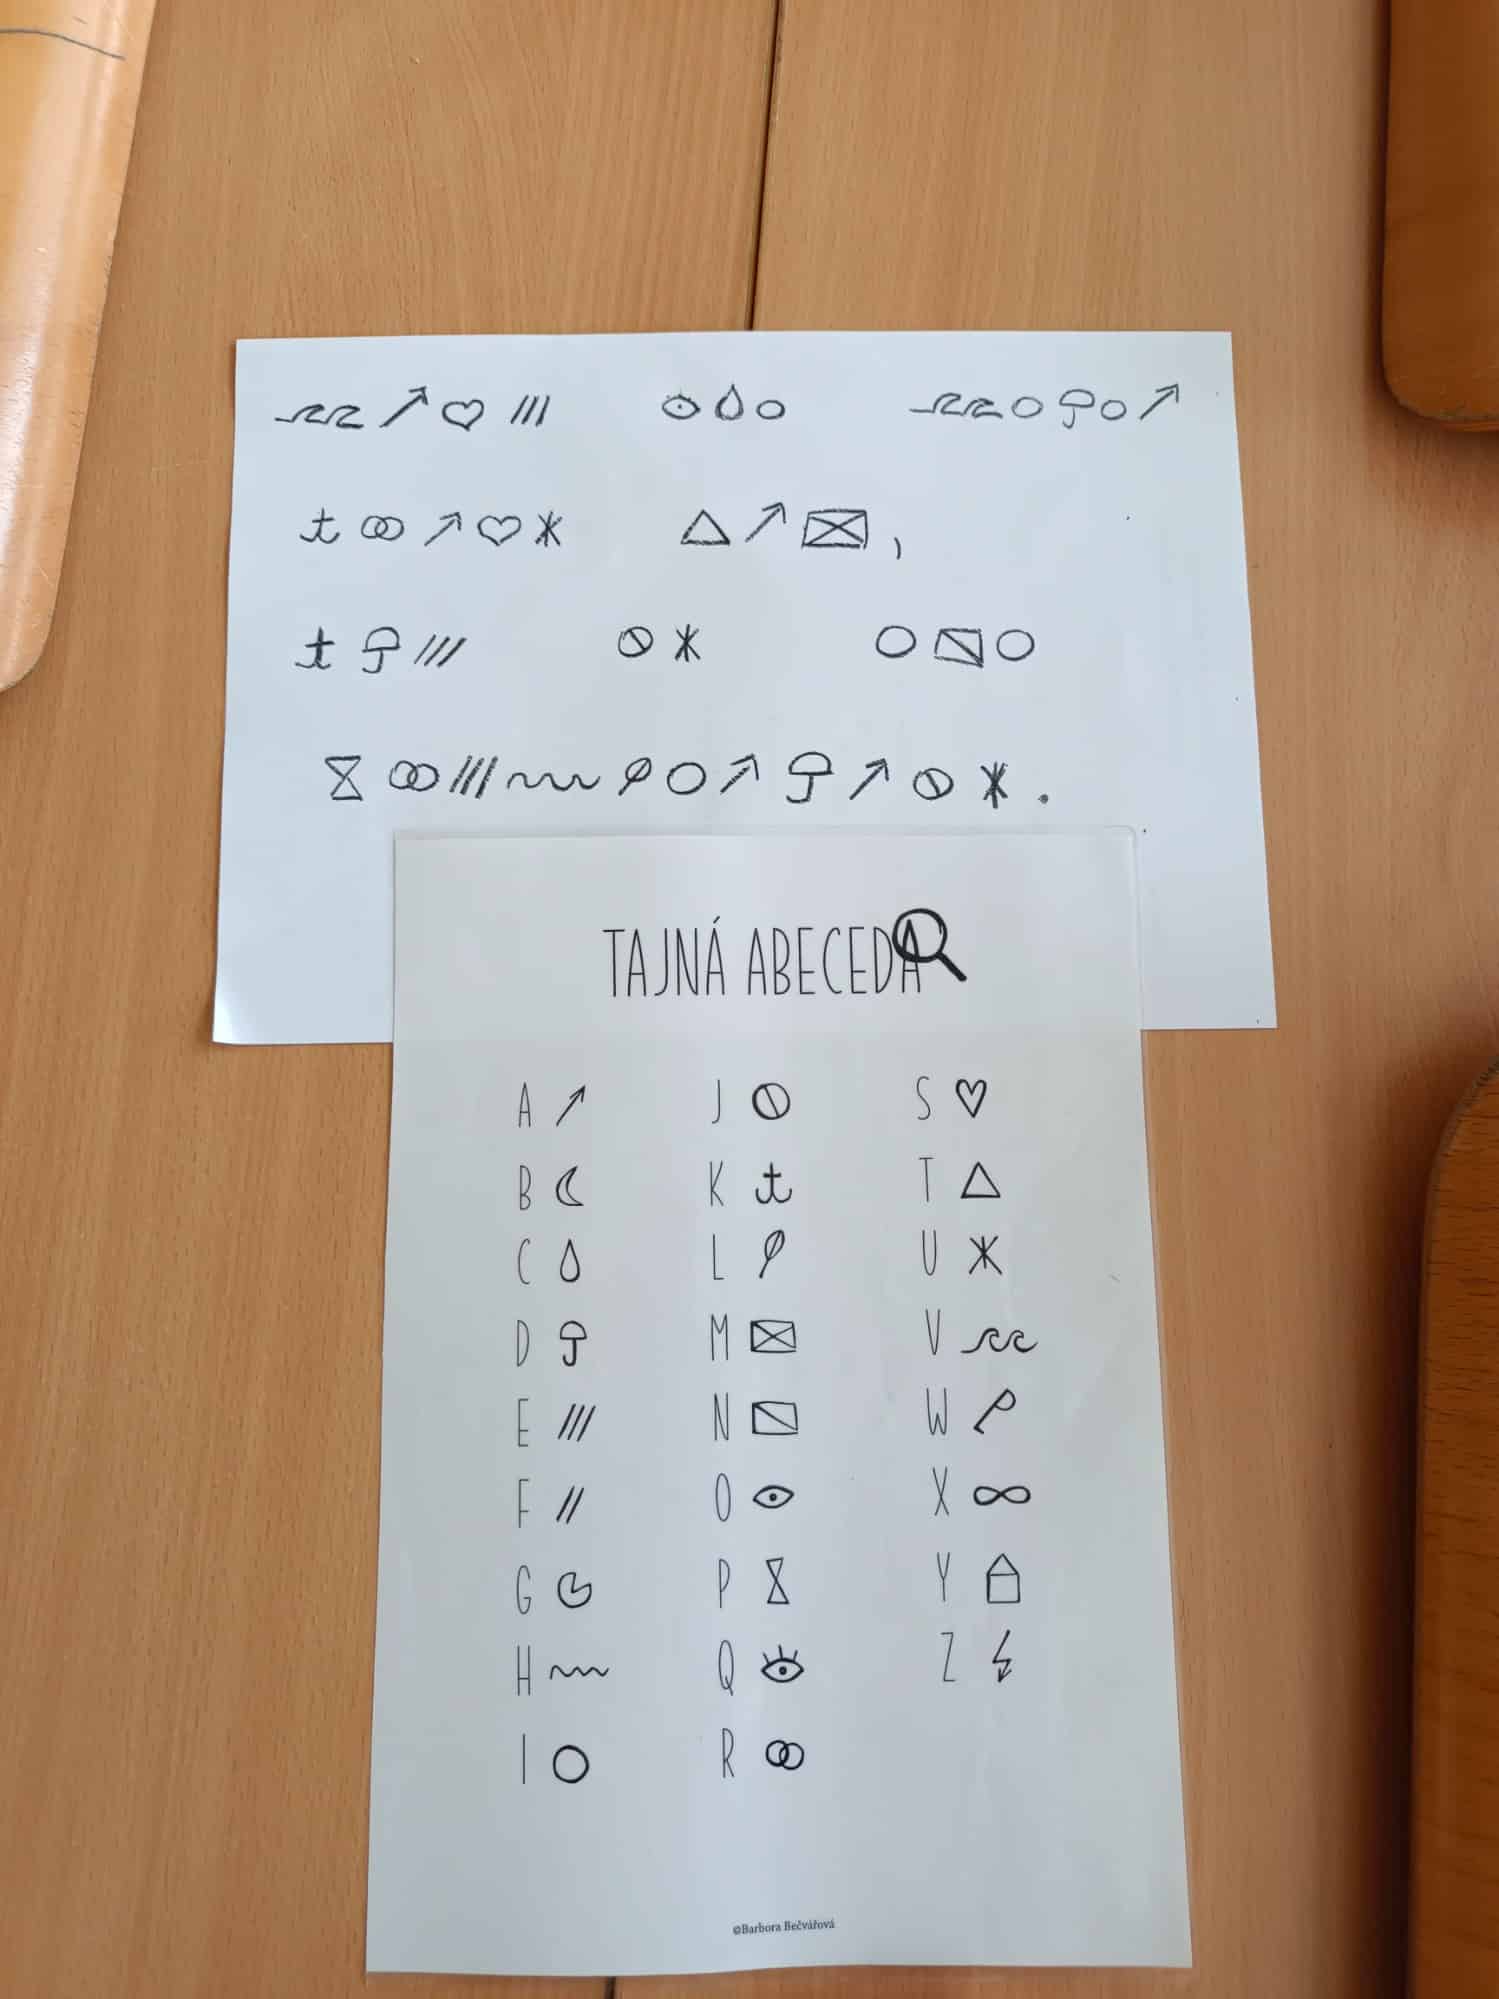 ,
.
TAJNÁ ABECEDA
A J S
B K T
C L U
D M V
E N W
F O X
G P Y
H Q Z
I R
©Barbora Bečvářová